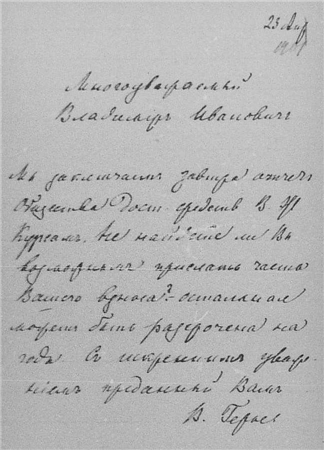 25 Апр
Многоуважаемый
Владимиръ Ивановичъ
Мы заключаемъ завтра отчетъ
Общества Дост. средствъ В. Ж
Курсамъ. Не найдете ли Вы
возможнымъ прислать часть
Вашего взноса? – остальная
можетъ быть разсрочена на
года. Съ искреннимъ уваже-
ніемъ преданный Вамъ
В. Герье